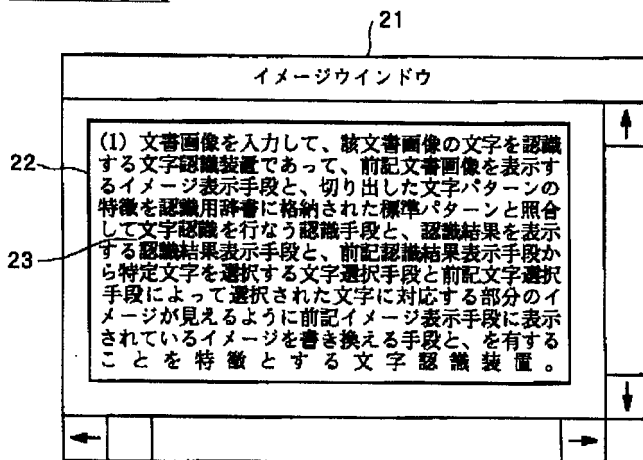 21
イメージウインドウ
22
23
(1) 文書画像を入力して、該文書画像の文字を認識
する文字認識装置であって、前記文書画像を表示す
るイメージ表示手段と、切り出した文字パターンの
特徴を認識用辞書に格納された標準パターンと照合
して文字認識を行なう認識手段と、認識結果を表示
する認識結果表示手段と、前記認識結果表示手段か
ら特定文字を選択する文字選択手段と前記文字選択
手段によって選択された文字に対応する部分のイ
メージが見えるように前記イメージ表示手段に表示
されているイメージを書き換える手段と、を有する
ことを特徴とする文字認識装置。